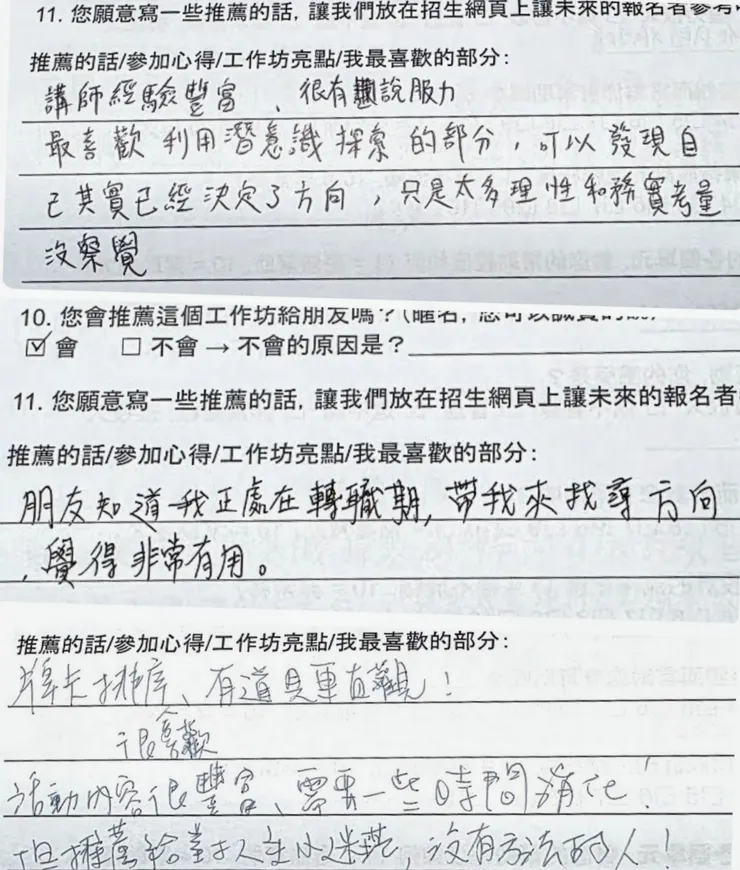 11. 您願意寫一些推薦的話, 讓我們放在招生網頁上讓未來的報名者參考
推薦的話/參加心得/工作坊亮點/我最喜歡的部分:
講師經驗豐富、很有說服力
最喜歡利用潛意識探索的部分，可以發現自
己其實已經決定了方向，只是太多理性和務實考量
沒察覺
10. 您會推薦這個工作坊給朋友嗎？(匿名, 您可以誠實的說)
☑ 會 ☐ 不會 → 不會的原因是？
11. 您願意寫一些推薦的話, 讓我們放在招生網頁上讓未來的報名者
推薦的話/參加心得/工作坊亮點/我最喜歡的部分:
朋友知道我正處在轉職期, 帶我來找尋方向
, 覺得非常有用。
推薦的話/參加心得/工作坊亮點/我最喜歡的部分:
牌卡排序、有道具更直觀！
很喜歡
活動內容很豐富、需要一些時間消化！
但推薦給對人生以迷茫, 沒有方法的人！